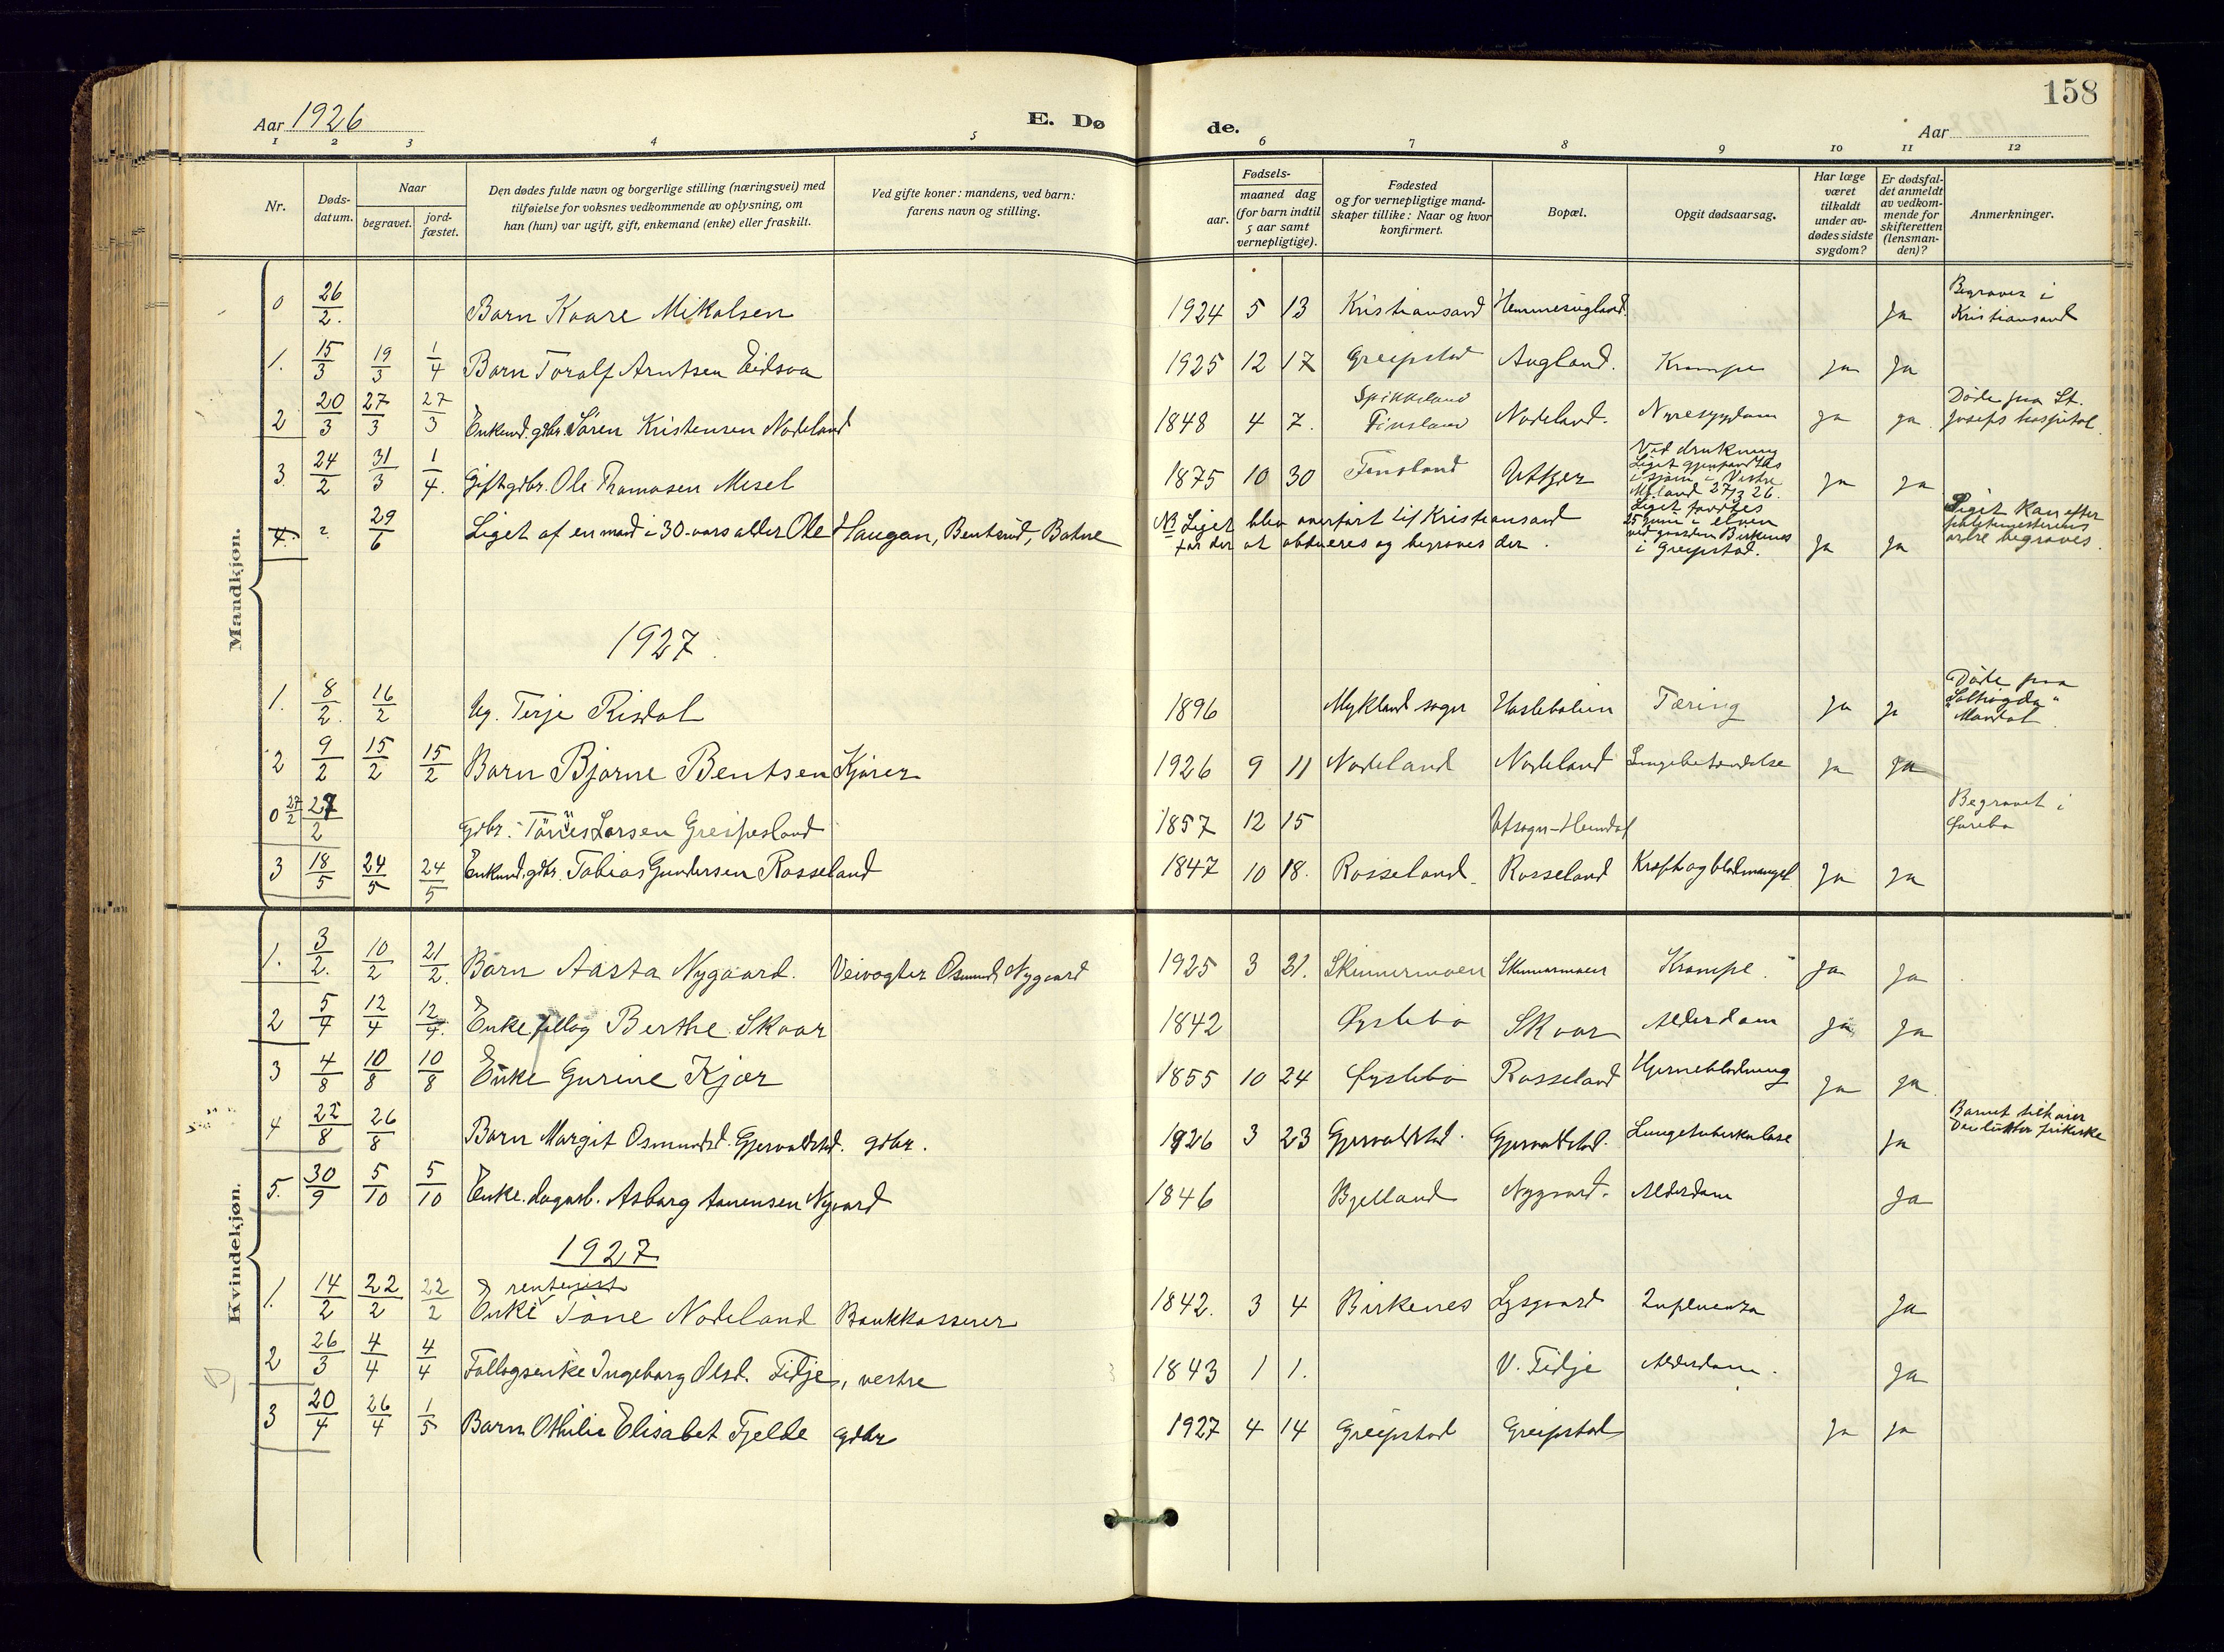 158
Aar 1926
E. Dø
de.
Aar
1 2 3 4 5 6 7 8 9 10 11 12
Nr.
Døds-
datum.
Naar
begravet.
jord-
fæstet.
Den dødes fulde navn og borgerlige stilling (næringsvei) med
tilføielse for voksnes vedkommende av oplysning, om
han (hun) var ugift, gift, enkemand (enke) eller fraskilt.
Ved gifte koner: mandens, ved barn:
farens navn og stilling.
Fødsels-
aar.
maaned dag
(for barn indtil
5 aar samt
vernepligtige).
Fødested
og for vernepligtige mand-
skaper tillike: Naar og hvor
konfirmert.
Bopæl.
Opgit dødsaarsag.
Har læge
været
tilkaldt
under av-
dødes sidste
sygdom?
Er dødsfal-
det anmeldt
av vedkom-
mende for
skifteretten
(lensman-
den)?
Anmerkninger.
Mandkjøn.
0 26/2. Barn Kaare Mikalsen 1924 5 13 Kristiansand Ja Begraves i
Kristiansand
1. 15/3 19/3 1/4 Barn Toralf Arntsen Eidsaa 1925 12 17 Greipstad Augland. Krampe Ja Ja
2 20/3 27/3 27/3 Enkemd. gdbr. Sören Kristensen Nodeland 1848 4 7. Spikkeland
Finsland Nodeland. Nyresygdom Ja Ja Döde paa St.
Josefs hospital.
3. 24/2 31/3 1/4. Gift gdbr. Ole Thomasen Mesel 1875 10 30 Finsland Ved drukning
Liget gjenfandtes
i sjøen i Vestre
27/3 26. Ja Ja
4. ? 29/6 Liget af en mand i 30-aars alder Ole Haugan, Bentsrud, NB Liget blev overført til Kristiansand
for der at obduceres og begraves der. Liget fandtes
25 juni i elven
ved gaarden Birkenes
i Greipstad. Ja Ja Liget kan efter
politimesterens
ordre begraves.
1927
1. 8/2. 16/2 Ug. Terje Risdal 1896 Mykland sogn Tæring Ja Ja Döde paa
"Solhögda"
Mandal
2 9/2 15/2 15/2 Barn Bjarne Bentsen Kjörer 1926 9 11 Nodeland Nodeland Lungebetændelse Ja Ja
0 27/2 27/2 Gdbr. Tönnes Larsen Greipesland 1857 12 15 Begravet i
3 18/5 24/5 24/5 Enkemd. gdbr. Tobias Gundersen Rosseland 1847 10 18. Rosseland Rosseland Kræft og blodmangel Ja Ja
Kvindekjøn.
1. 3/2. 10/2 21/2. Barn Aasta Nygaard. Veivogter Osmund Nygaard 1925 3 21. Skinnarmoen Skinnarmoen Krampe. Ja Ja
2 5/4 12/4 12/4. Enke fellog Berthe Skaar 1842 Øyslebø Skaar Alderdom Ja Ja
3 4/8 10/8 10/8 Enke Gurine Kjær 1855 10 24 Øyslebø Rosseland Hjerneblødning Ja Ja
4 22/8 26/8 Barn Margit Osmundsd. Gjervaldstad. gdbr. 1926 3 23 Gjervaldstad. Gjervaldstad. Lungetuberkulose Ja Barnet tilhører
frikirke
5. 30/9 5/10 5/10 Enke. Asborg Nygaard 1846 Bjelland Nygaard. Alderdom Ja
1927
1. 14/2 22/2 22/2 rentenist
Enke Tone Nodeland Bankkasserer 1842. 3 4 Birkenes Lysgaard Influenza Ja
2 26/3 4/4 4/4 Follogsenke Ingeborg Olsd. Tidje, vestre 1843 1 1. V. Tidje Alderdom. Ja
3 20/4 26/4 1/5 Barn Othilie Elisabet Fjelde gdbr 1927 4 14 Greipstad Greipstad Ja Ja